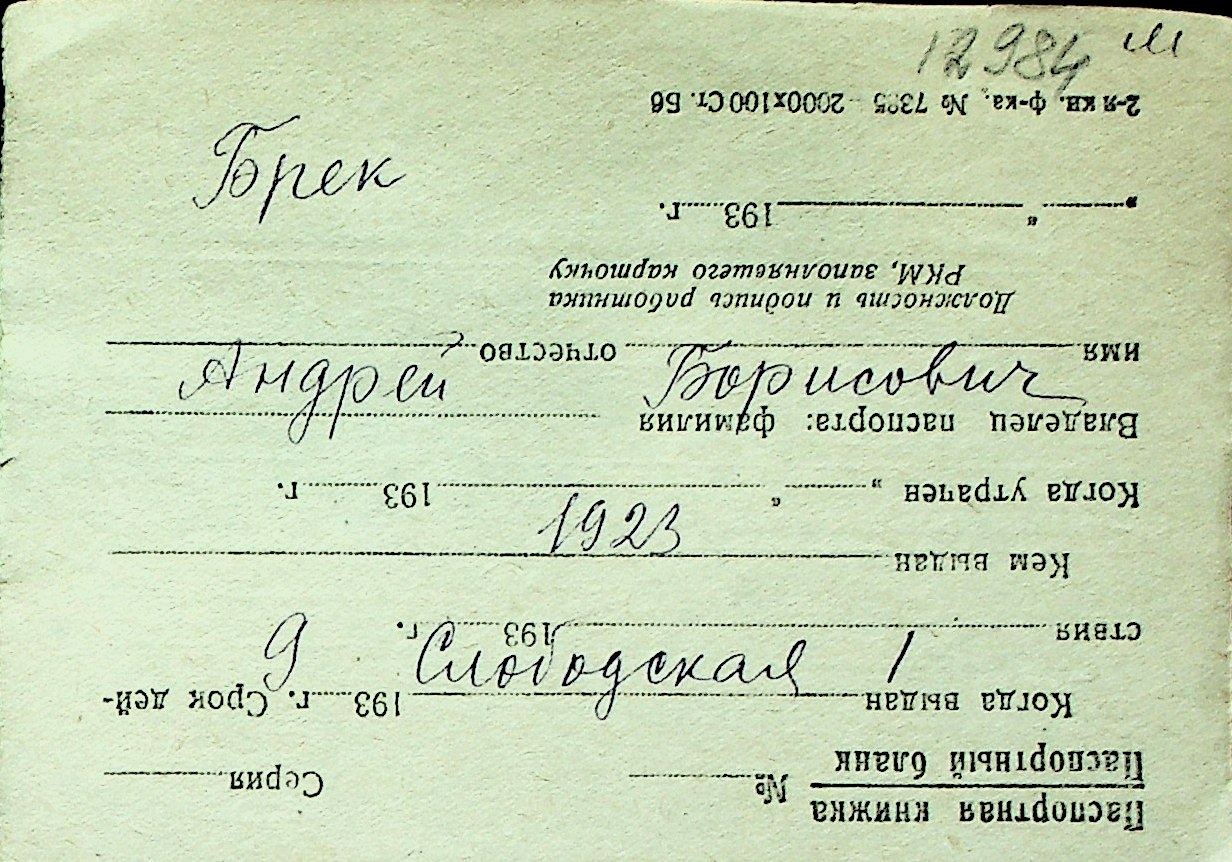 12984 м
Брек
Андрей Борисович
1923
9 Слободская 1
Паспортная книжка
Паспортный бланк № Серия
Когда выдан 193 г. Срок дей-
ствия 193 г.
Кем выдан
Когда утрачен „ “ 193 г.
Владелец паспорта: фамилия
имя отчество
Должность и подпись работника
РКМ, заполнявшего карточку
„ “ 193 г.
2-я кн. ф-ка. № 2000х100 Ст.